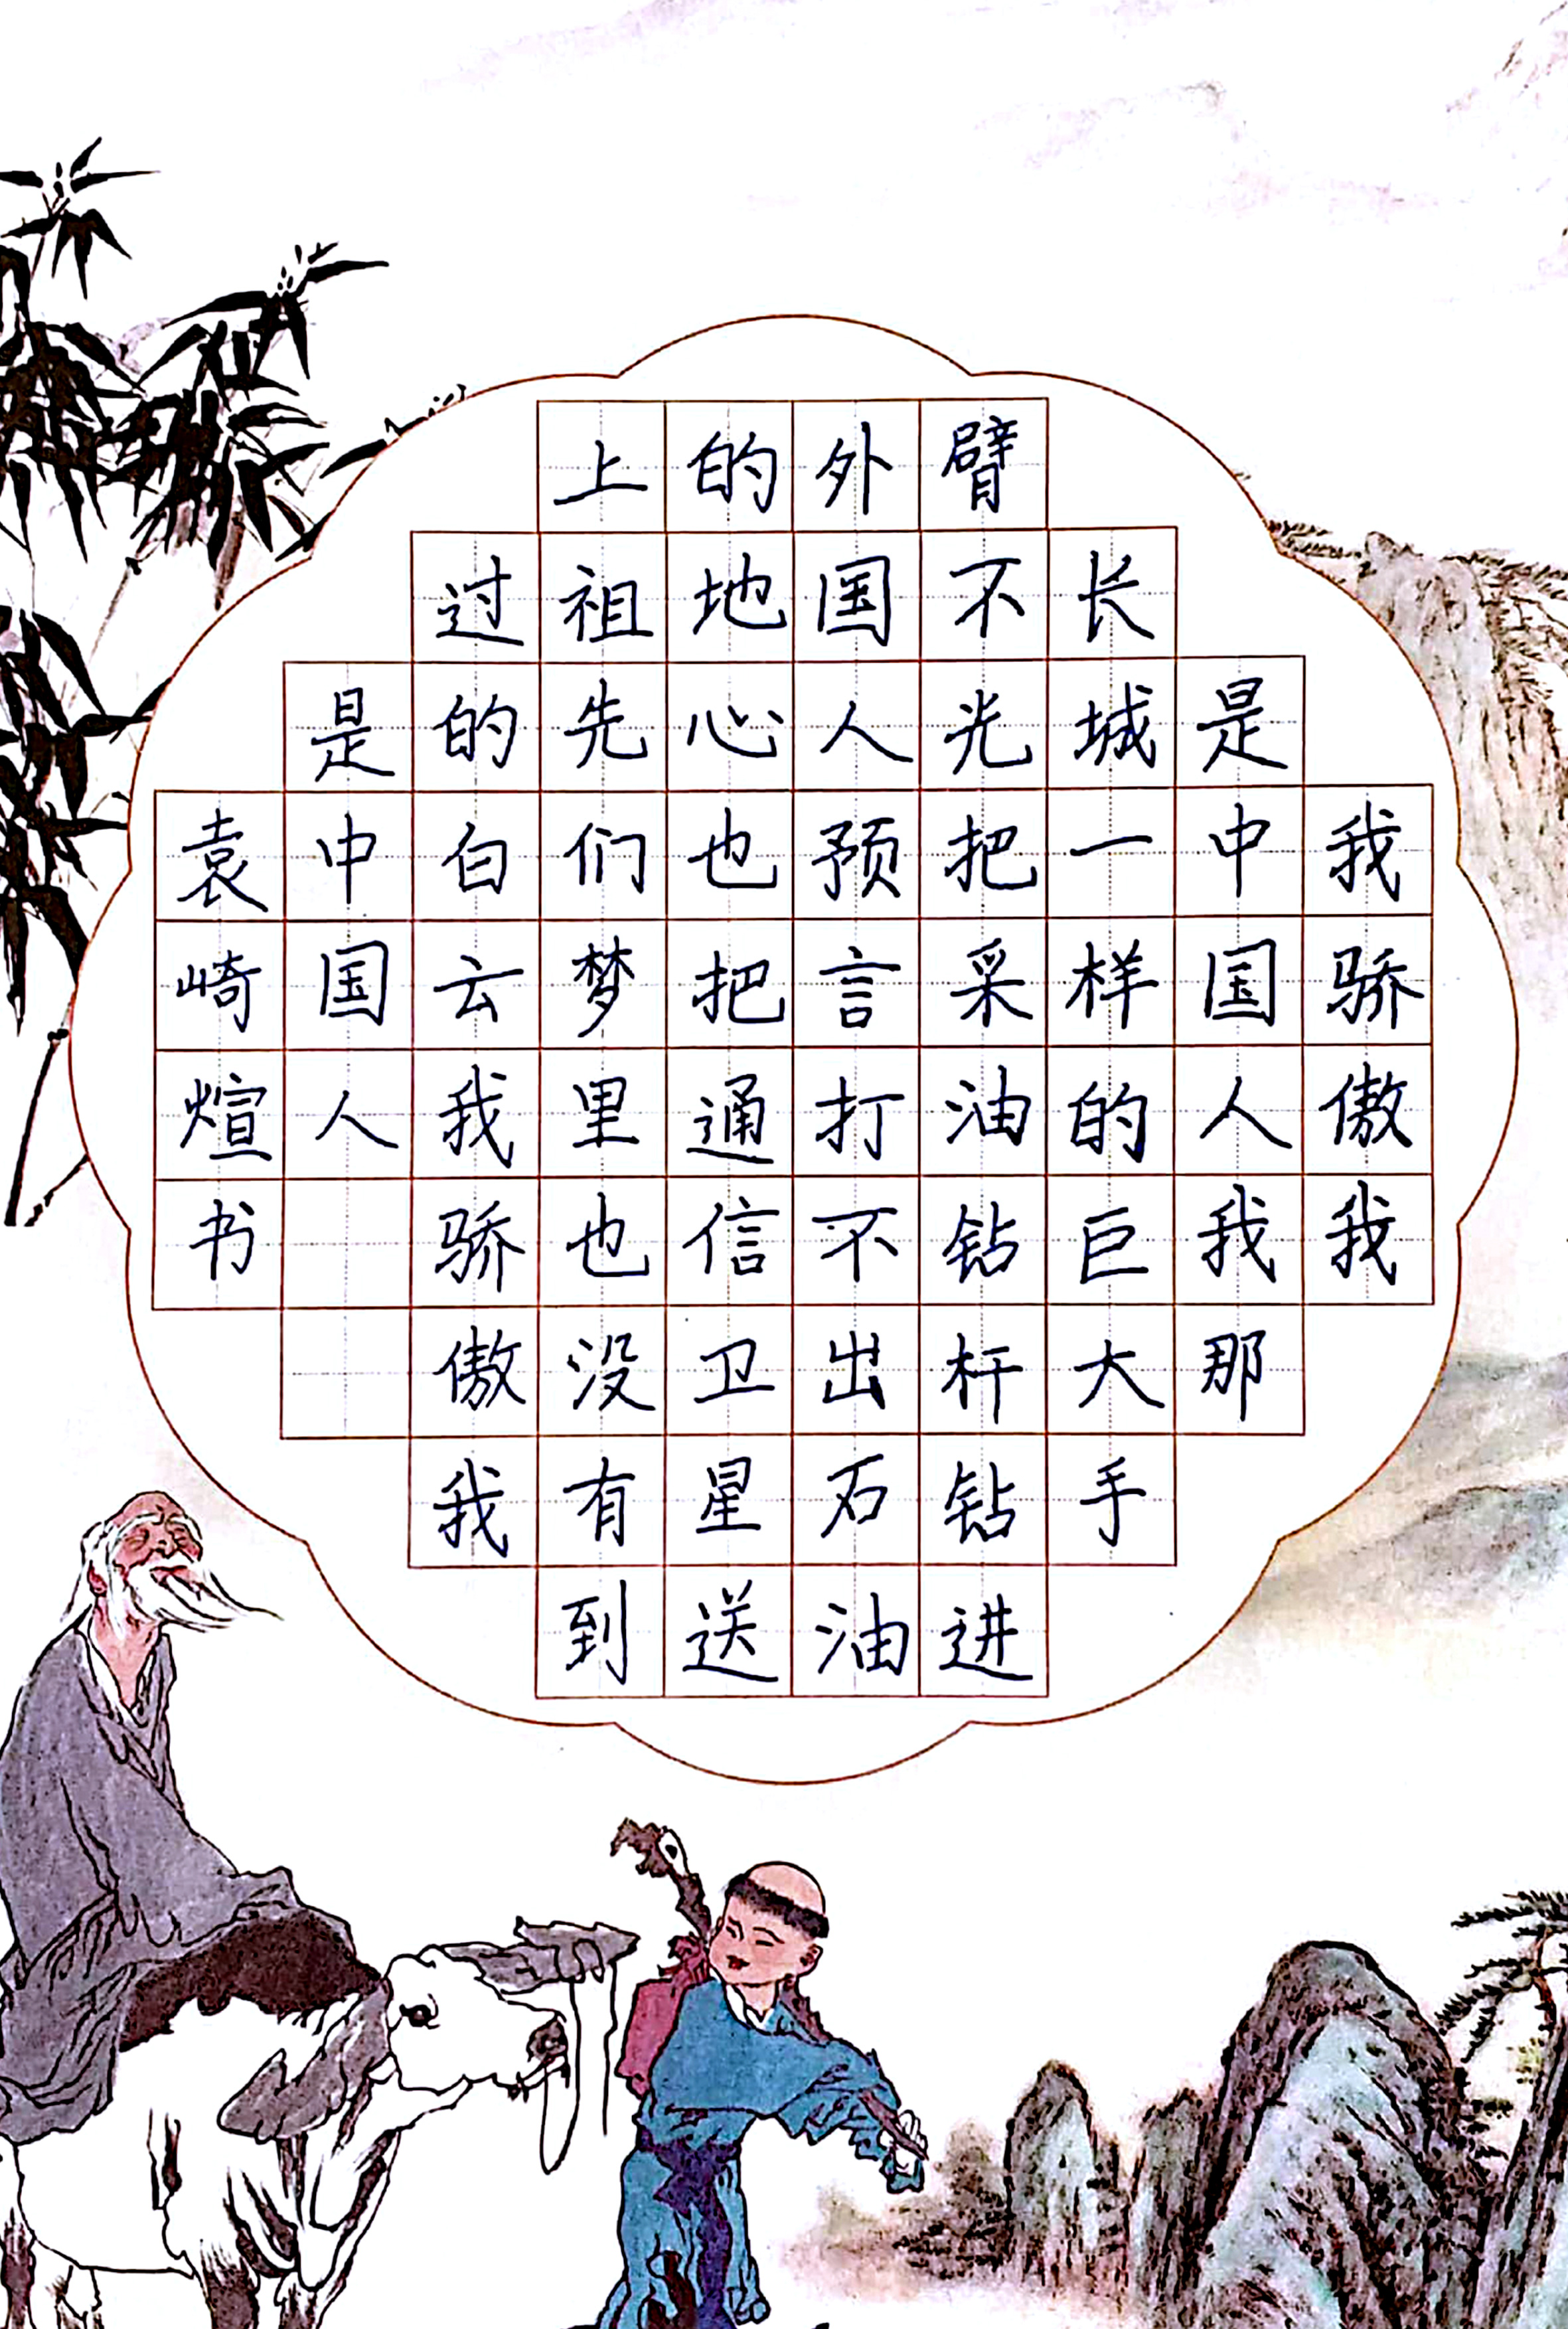 我骄傲我
是中国人我那
长城一样的巨大手
臂不光把采油钻杆钻进
外国人预言打不出石油
的地心也把通信卫星送
上祖先们梦里也没有到
过的白云我骄傲我
是中国人
袁崎煊书